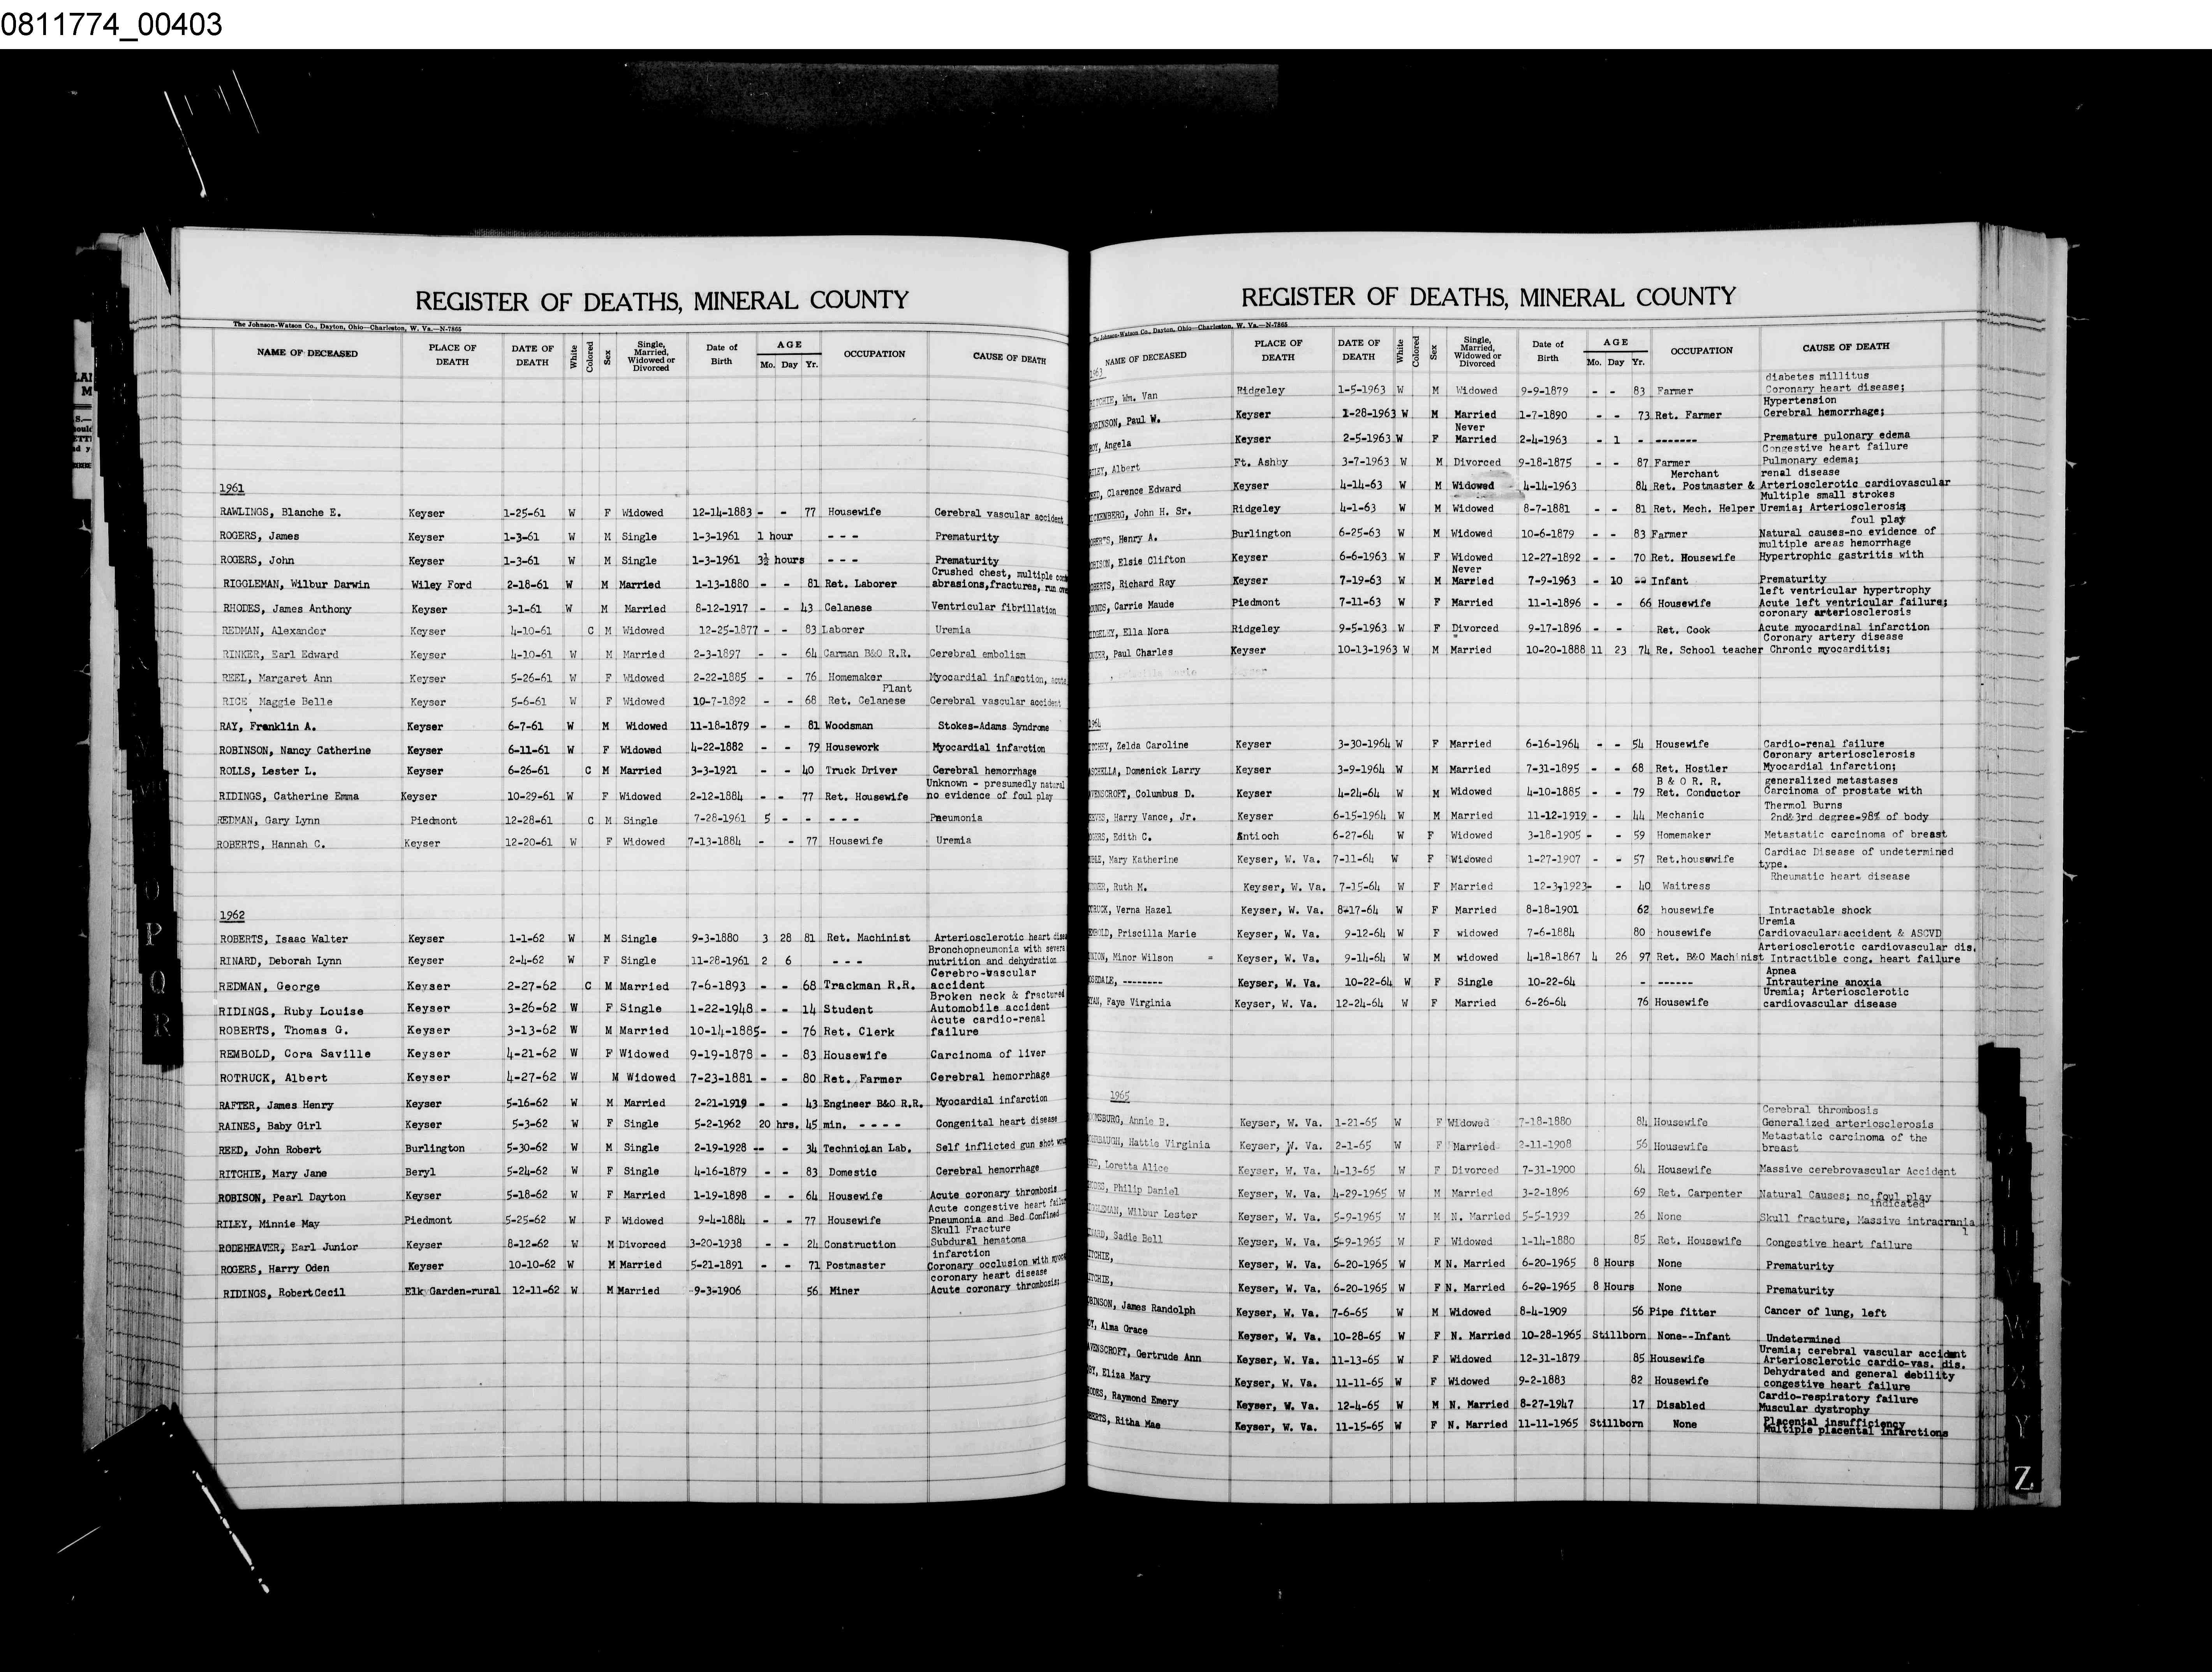 0811774_00403
REGISTER OF DEATHS, MINERAL COUNTY
The Johnson-Watson Co., Dayton, Ohio—Charleston, W. Va.—N-7865
NAME OF DECEASED PLACE OF DEATH DATE OF DEATH White Colored Sex Single, Married, Widowed or Divorced Date of Birth AGE Mo. Day Yr. OCCUPATION CAUSE OF DEATH
1961
RAWLINGS, Blanche E. Keyser 1-25-61 W F Widowed 12-14-1883 - - 77 Housewife Cerebral vascular accident
ROGERS, James Keyser 1-3-61 W M Single 1-3-1961 1 hour - - - Prematurity
ROGERS, John Keyser 1-3-61 W M Single 1-3-1961 3½ hours - - - Prematurity
Crushed chest, multiple
RIGGLEMAN, Wilbur Darwin Wiley Ford 2-18-61 W M Married 1-13-1880 - - 81 Ret. Laborer abrasions,fractures, run
RHODES, James Anthony Keyser 3-1-61 W M Married 8-12-1917 - - 43 Celanese Ventricular fibrillation
REDMAN, Alexander Keyser 4-10-61 C M Widowed 12-25-1877 - - 83 Laborer Uremia
RINKER, Earl Edward Keyser 4-10-61 W M Married 2-3-1897 - - 64 Carman B&O R.R. Cerebral embolism
REEL, Margaret Ann Keyser 5-26-61 W F Widowed 2-22-1885 - - 76 Homemaker Myocardial infarction, acute
Plant
RICE, Maggie Belle Keyser 5-6-61 W F Widowed 10-7-1892 - - 68 Ret. Celanese Cerebral vascular accident
RAY, Franklin A. Keyser 6-7-61 W M Widowed 11-18-1879 - - 81 Woodsman Stokes-Adams Syndrome
ROBINSON, Nancy Catherine Keyser 6-11-61 W F Widowed 4-22-1882 - - 79 Housework Myocardial infarction
ROLLS, Lester L. Keyser 6-26-61 C M Married 3-3-1921 - - 40 Truck Driver Cerebral hemorrhage
Unknown - presumedly natural
RIDINGS, Catherine Emma Keyser 10-29-61 W F Widowed 2-12-1884 - - 77 Ret. Housewife no evidence of foul play
REDMAN, Gary Lynn Piedmont 12-28-61 C M Single 7-28-1961 5 - - - - - Pneumonia
ROBERTS, Hannah C. Keyser 12-20-61 W F Widowed 7-13-1884 - - 77 Housewife Uremia
1962
ROBERTS, Isaac Walter Keyser 1-1-62 W M Single 9-3-1880 3 28 81 Ret. Machinist Arteriosclerotic heart
Bronchopneumonia with
RINARD, Deborah Lynn Keyser 2-4-62 W F Single 11-28-1961 2 6 - - - nutrition and dehydration
Cerebro-vascular
REDMAN, George Keyser 2-27-62 C M Married 7-6-1893 - - 68 Trackman R.R. accident
Broken neck & fractured
RIDINGS, Ruby Louise Keyser 3-26-62 W F Single 1-22-1948 - - 14 Student Automobile accident
Acute cardio-renal
ROBERTS, Thomas G. Keyser 3-13-62 W M Married 10-14-1885 - - 76 Ret. Clerk failure
REMBOLD, Cora Saville Keyser 4-21-62 W F Widowed 9-19-1878 - - 83 Housewife Carcinoma of liver
ROTRUCK, Albert Keyser 4-27-62 W M Widowed 7-23-1881 - - 80 Ret. Farmer Cerebral hemorrhage
RAFTER, James Henry Keyser 5-16-62 W M Married 2-21-1919 - - 43 Engineer B&O R.R. Myocardial infarction
RAINES, Baby Girl Keyser 5-3-62 W F Single 5-2-1962 20 hrs. 45 min. - - - - Congenital heart disease
REED, John Robert Burlington 5-30-62 W M Single 2-19-1928 -- - 34 Technician Lab. Self inflicted gun shot
RITCHIE, Mary Jane Beryl 5-24-62 W F Single 4-16-1879 - - 83 Domestic Cerebral hemorrhage
ROBISON, Pearl Dayton Keyser 5-18-62 W F Married 1-19-1898 - - 64 Housewife Acute coronary thrombosis
Acute congestive heart
RILEY, Minnie May Piedmont 5-25-62 W F Widowed 9-4-1884 - - 77 Housewife Pneumonia and Bed Confined
Skull Fracture
RODEHEAVER, Earl Junior Keyser 8-12-62 W M Divorced 3-20-1938 - - 24 Construction Subdural hematoma
infarction
ROGERS, Harry Oden Keyser 10-10-62 W M Married 5-21-1891 - - 71 Postmaster Coronary occlusion with
coronary heart disease
RIDINGS, Robert Cecil Elk Garden-rural 12-11-62 W M Married 9-3-1906 56 Miner Acute coronary thrombosis;
P
Q
R
REGISTER OF DEATHS, MINERAL COUNTY
The Johnson-Watson Co., Dayton, Ohio—Charleston, W. Va.—N-7865
NAME OF DECEASED PLACE OF DEATH DATE OF DEATH White Colored Sex Single, Married, Widowed or Divorced Date of Birth AGE Mo. Day Yr. OCCUPATION CAUSE OF DEATH
1963
diabetes millitus
RITCHIE, Wm. Van Ridgeley 1-5-1963 W M Widowed 9-9-1879 - - 83 Farmer Coronary heart disease;
Hypertension
ROBINSON, Paul W. Keyser 1-28-1963 W M Married 1-7-1890 - - 73 Ret. Farmer Cerebral hemorrhage;
Never
Angela Keyser 2-5-1963 W F Married 2-4-1963 - 1 - ------- Premature pulonary edema
Congestive heart failure
Albert Ft. Ashby 3-7-1963 W M Divorced 9-18-1875 - - 87 Farmer Pulmonary edema;
Merchant renal disease
Clarence Edward Keyser 4-14-63 W M Widowed 4-14-1963 84 Ret. Postmaster & Arteriosclerotic cardiovascular
Multiple small strokes
John H. Sr. Ridgeley 4-1-63 W M Widowed 8-7-1881 - - 81 Ret. Mech. Helper Uremia; Arteriosclerosis
foul play
Henry A. Burlington 6-25-63 W M Widowed 10-6-1879 - - 83 Farmer Natural causes-no evidence of
multiple areas hemorrhage
Elsie Clifton Keyser 6-6-1963 W F Widowed 12-27-1892 - - 70 Ret. Housewife Hypertrophic gastritis with
Never
Richard Ray Keyser 7-19-63 W M Married 7-9-1963 - 10 -- Infant Prematurity
left ventricular hypertrophy
Carrie Maude Piedmont 7-11-63 W F Married 11-1-1896 - - 66 Housewife Acute left ventricular failure;
coronary arteriosclerosis
Ella Nora Ridgeley 9-5-1963 W F Divorced 9-17-1896 - - Ret. Cook Acute myocardinal infarction
Coronary artery disease
Paul Charles Keyser 10-13-1963 W M Married 10-20-1888 11 23 74 Re. School teacher Chronic myocarditis;
1964
Zelda Caroline Keyser 3-30-1964 W F Married 6-16-1964 - - 54 Housewife Cardio-renal failure
Coronary arteriosclerosis
Domenick Larry Keyser 3-9-1964 W M Married 7-31-1895 - - 68 Ret. Hostler Myocardial infarction;
B & O R. R. generalized metastases
Columbus D. Keyser 4-24-64 W M Widowed 4-10-1885 - - 79 Ret. Conductor Carcinoma of prostate with
Thermol Burns
Harry Vance, Jr. Keyser 6-15-1964 W M Married 11-12-1919 - - 44 Mechanic 2nd&3rd degree-98% of body
Edith C. Antioch 6-27-64 W F Widowed 3-18-1905 - - 59 Homemaker Metastatic carcinoma of breast
Cardiac Disease of undetermined
Mary Katherine Keyser, W. Va. 7-11-64 W F Widowed 1-27-1907 - - 57 Ret.housewife type.
Rheumatic heart disease
Ruth M. Keyser, W. Va. 7-15-64 W F Married 12-3,1923 - - 40 Waitress
Verna Hazel Keyser, W. Va. 8-17-64 W F Married 8-18-1901 62 housewife Intractable shock
Uremia
Priscilla Marie Keyser, W. Va. 9-12-64 W F widowed 7-6-1884 80 housewife Cardiovacular accident & ASCVD
Arteriosclerotic cardiovascular dis.
Minor Wilson = Keyser, W. Va. 9-14-64 W M widowed 4-18-1867 4 26 97 Ret. B&O Machinist Intractible cong. heart failure
Apnea
-------- Keyser, W. Va. 10-22-64 W F Single 10-22-64 - ------ Intrauterine anoxia
Uremia; Arteriosclerotic
Faye Virginia Keyser, W. Va. 12-24-64 W F Married 6-26-64 76 Housewife cardiovascular disease
1965
Cerebral thrombosis
Annie B. Keyser, W. Va. 1-21-65 W F Widowed 7-18-1880 84 Housewife Generalized arteriosclerosis
Metastatic carcinoma of the
Hattie Virginia Keyser, W. Va. 2-1-65 W F Married 2-11-1908 56 Housewife breast
Loretta Alice Keyser, W. Va. 4-13-65 W F Divorced 7-31-1900 64 Housewife Massive cerebrovascular Accident
Philip Daniel Keyser, W. Va. 4-29-1965 W M Married 3-2-1896 69 Ret. Carpenter Natural Causes; no foul play
indicated
Wilbur Lester Keyser, W. Va. 5-9-1965 W M N. Married 5-5-1939 26 None Skull fracture, Massive intracrania
l
Sadie Bell Keyser, W. Va. 5-9-1965 W F Widowed 1-14-1880 85 Ret. Housewife Congestive heart failure
Keyser, W. Va. 6-20-1965 W M N. Married 6-20-1965 8 Hours None Prematurity
Keyser, W. Va. 6-20-1965 W F N. Married 6-20-1965 8 Hours None Prematurity
James Randolph Keyser, W. Va. 7-6-65 W M Widowed 8-4-1909 56 Pipe fitter Cancer of lung, left
Alma Grace Keyser, W. Va. 10-28-65 W F N. Married 10-28-1965 Stillborn None--Infant Undetermined
Uremia; cerebral vascular accident
Gertrude Ann Keyser, W. Va. 11-13-65 W F Widowed 12-31-1879 85 Housewife Arteriosclerotic cardio-vas. dis.
Dehydrated and general debility
Eliza Mary Keyser, W. Va. 11-11-65 W F Widowed 9-2-1883 82 Housewife congestive heart failure
Cardio-respiratory failure
Raymond Emery Keyser, W. Va. 12-4-65 W M N. Married 8-27-1947 17 Disabled Muscular dystrophy
Placental insufficiency
Ritha Mae Keyser, W. Va. 11-15-65 W F N. Married 11-11-1965 Stillborn None Multiple placental infarctions
W
X
Y
Z